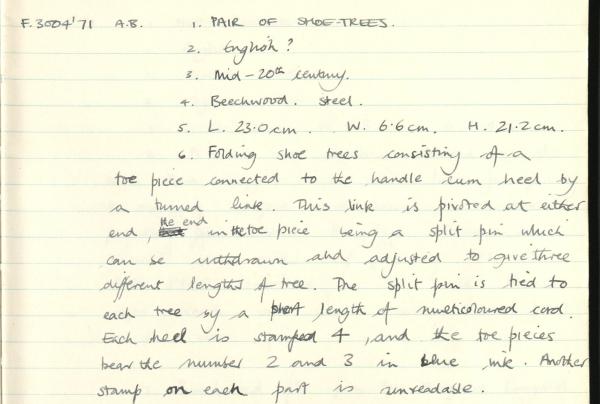 F.3004'71 A.B. 1. PAIR OF SHOE-TREES.
2. English?
3. Mid-20th century.
4. Beechwood. Steel.
5. L. 23.0cm. W. 6.6cm. H. 21.2cm.
6. Folding shoe trees consisting of a
toe piece connected to the handle cum heel by
a turned link. This link is pivoted at either
end, the end in the toe piece being a split pin which
can be withdrawn and adjusted to give three
different lengths of tree. The split pin is tied to
each tree by a short length of multicoloured cord.
Each heel is stamped 4, and the toe pieces
bear the number 2 and 3 in blue ink. Another
stamp on each part is unreadable.